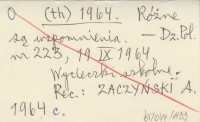 O (th) 1964. Różne
są wspomnienia. — Dz. Pol.
nr 223, 19 IX 1964
Wycieczki szkolne.
Rec.: ZACZYŃSKI A.
1964 c.